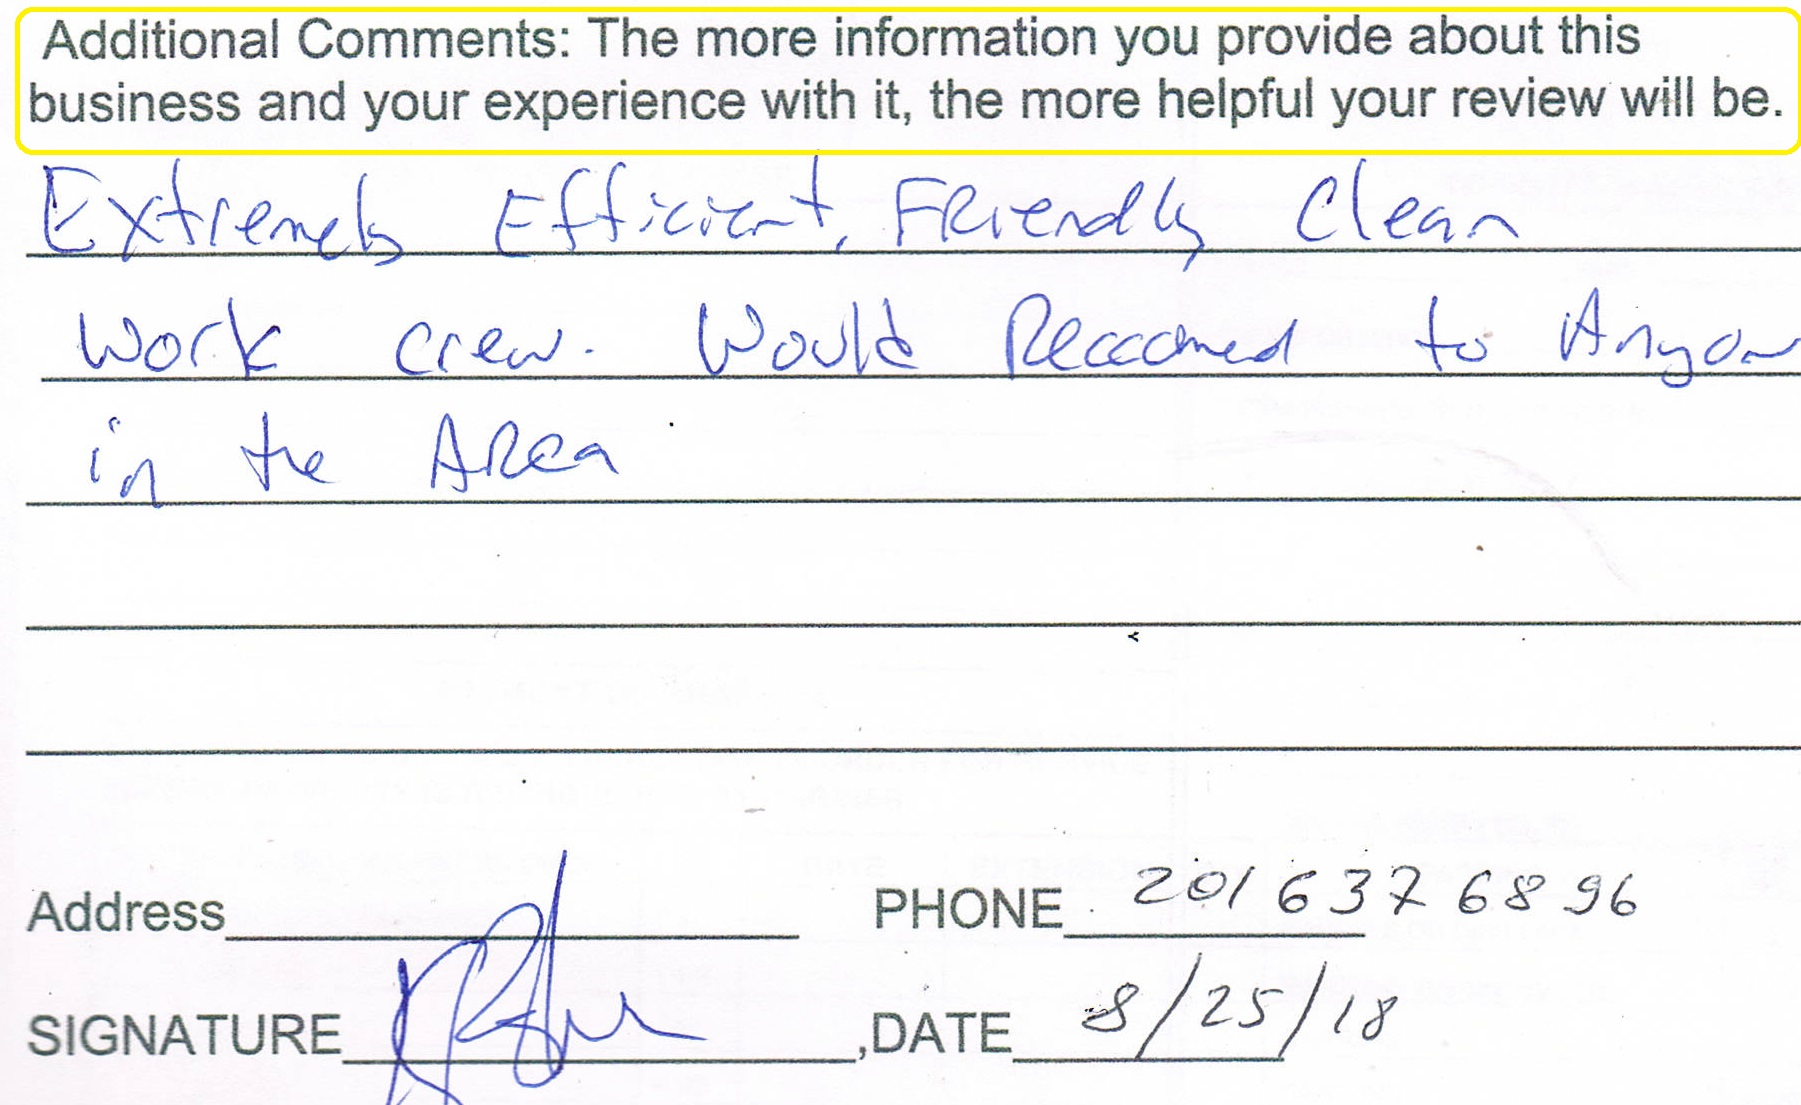 Additional Comments: The more information you provide about this
business and your experience with it, the more helpful your review will be.
Extremely Efficient, Friendly Clean
Work crew. Would Reccomed to Anyone
in the Area
Address PHONE 201 637 6896
SIGNATURE ,DATE 8/25/18